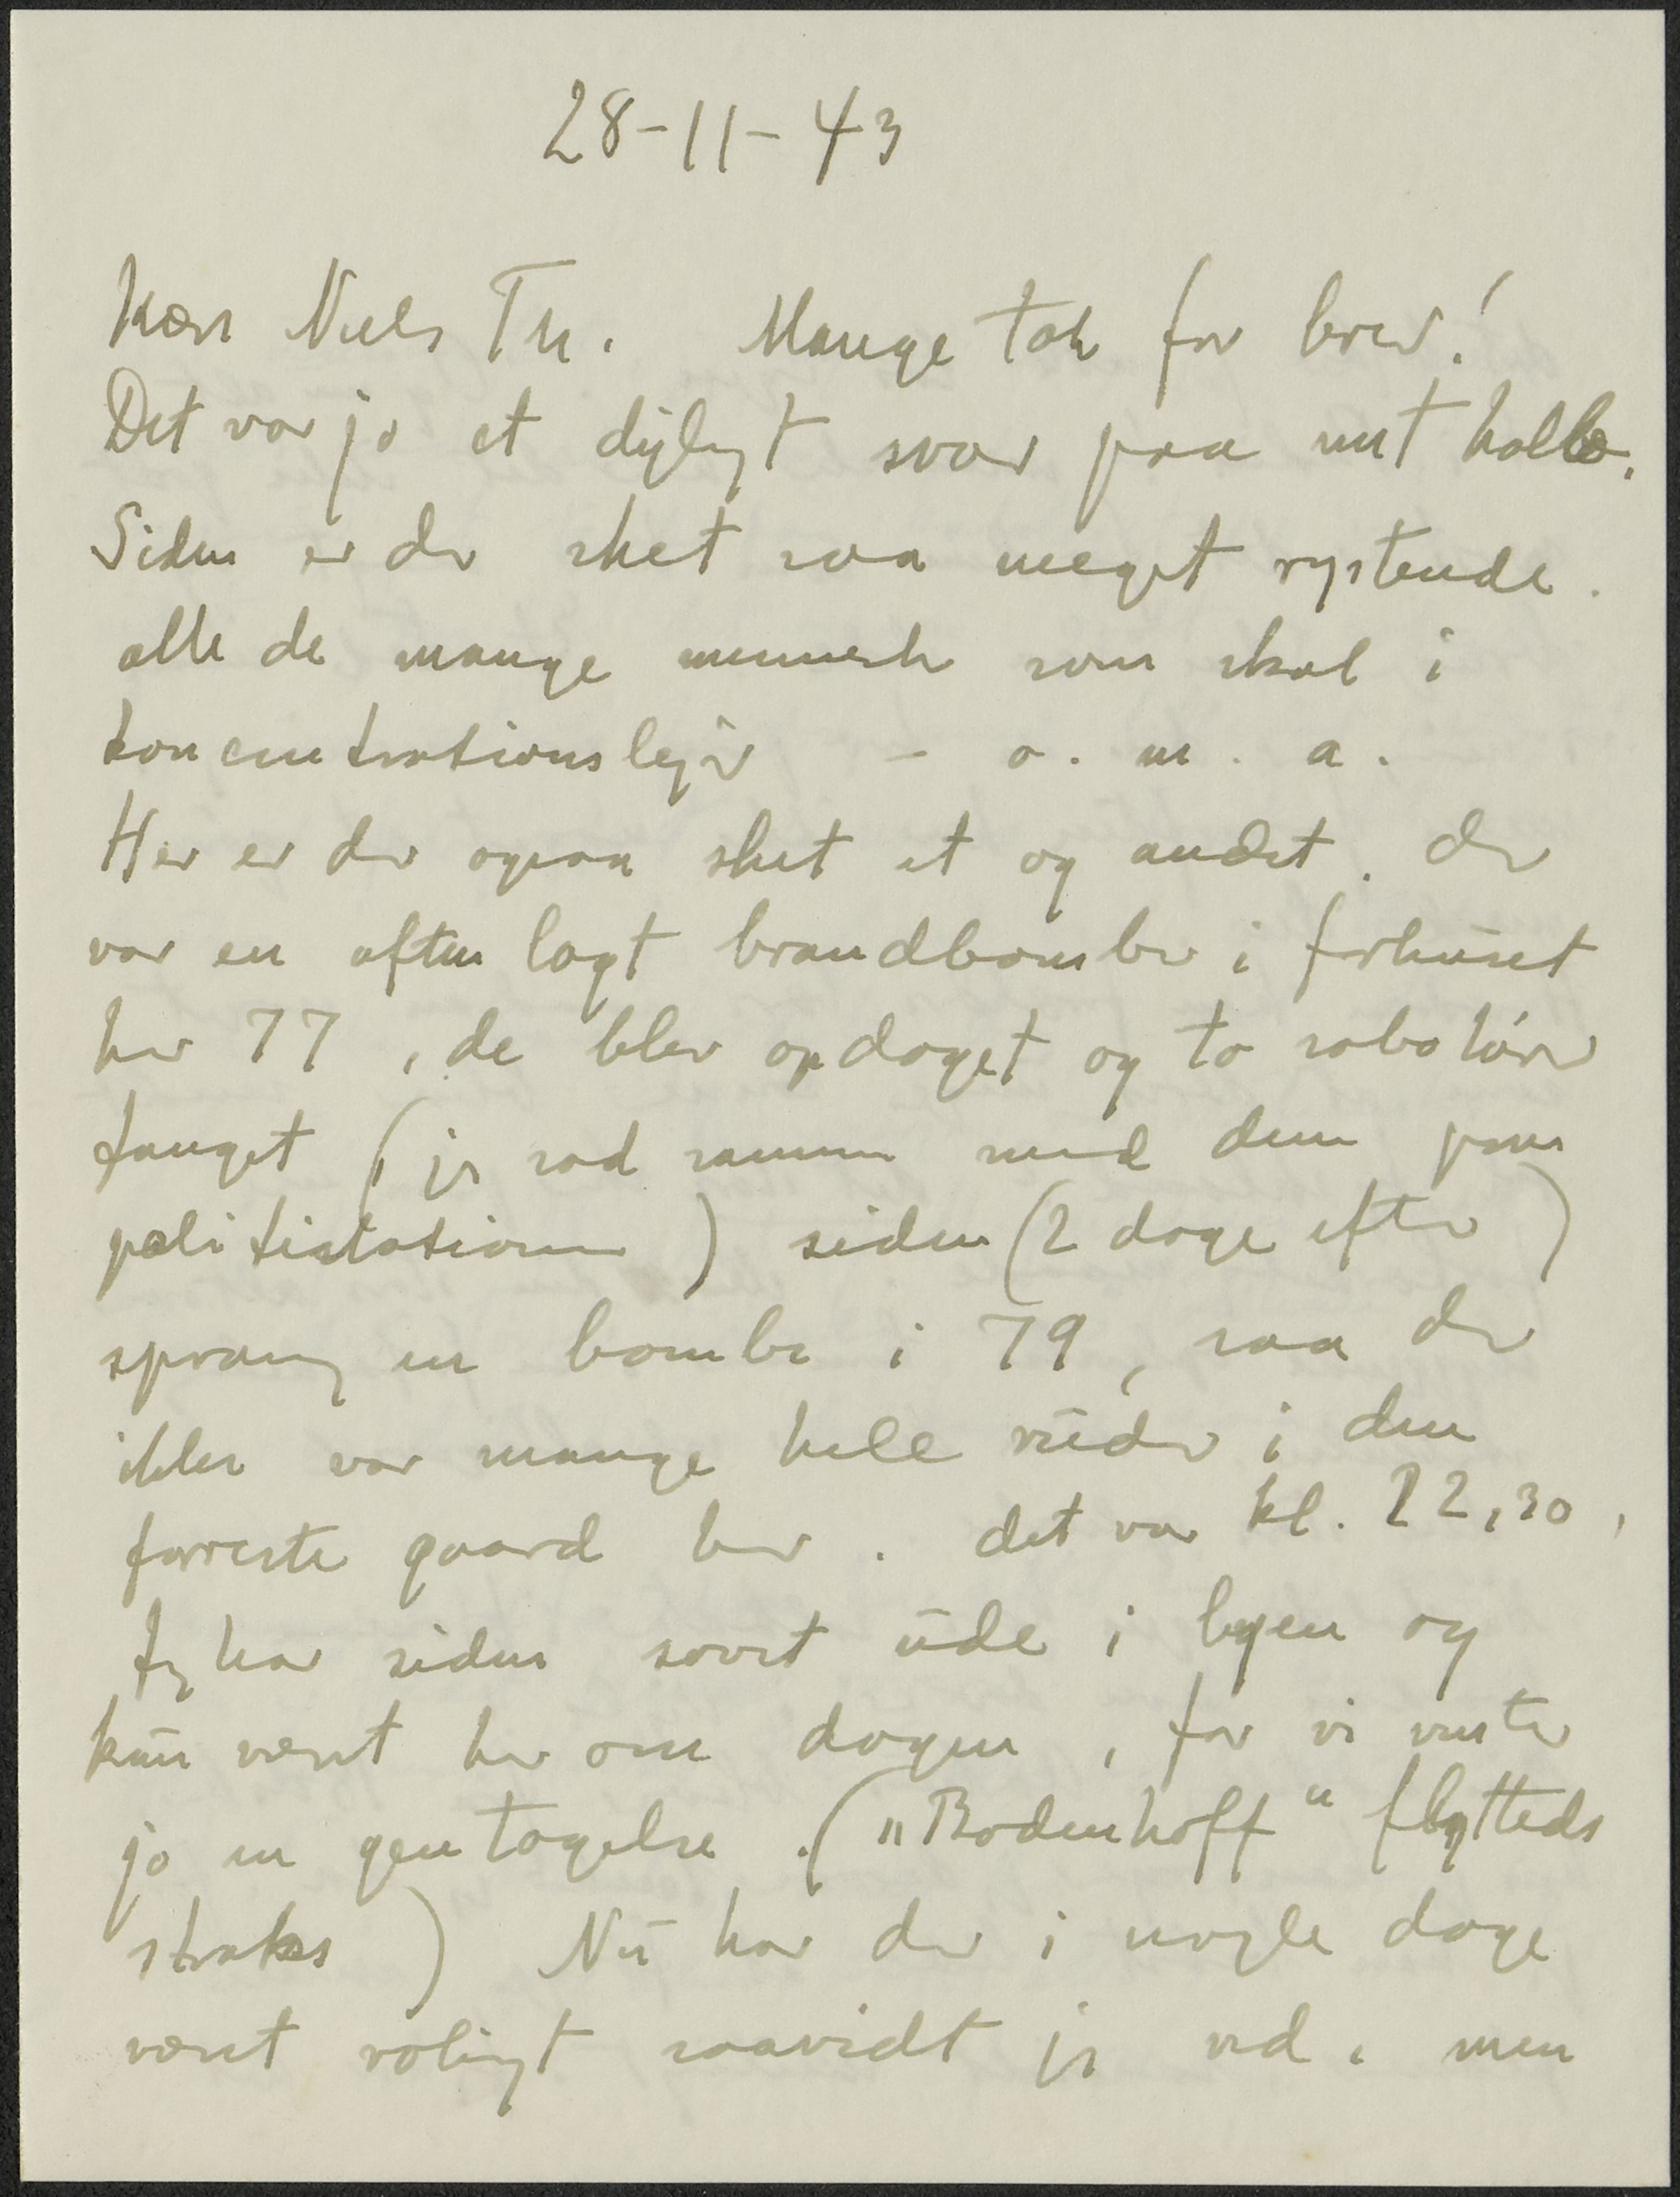 28-11-43
Kære Niels Th. Mange tak for brev!
Det var jo et dyligt svar paa mit hallo.
Siden er der sket saa meget rystende.
alle de mange mennesker som skal i
koncentrationslejr - o. m. a.
Her er der ogsaa sket et og andet. der
var en aften lagt brandbomber i forhuset
her 77, de blev opdaget og to sabotører
fanget (jeg sad sammen med dem paa
politistationen) siden (2 dage efter)
sprang en bombe i 79, saa der
ikke var mange hele ruder i den
forreste gaard her. det var kl. 22,30,
Jeg har siden sovet ude i byen og
kun været her om dagen, for vi venter
jo en gentagelse. („Bodenhoff" flyttede
straks) Nu har der i nogle dage
været roligt saavidt jeg ved. men